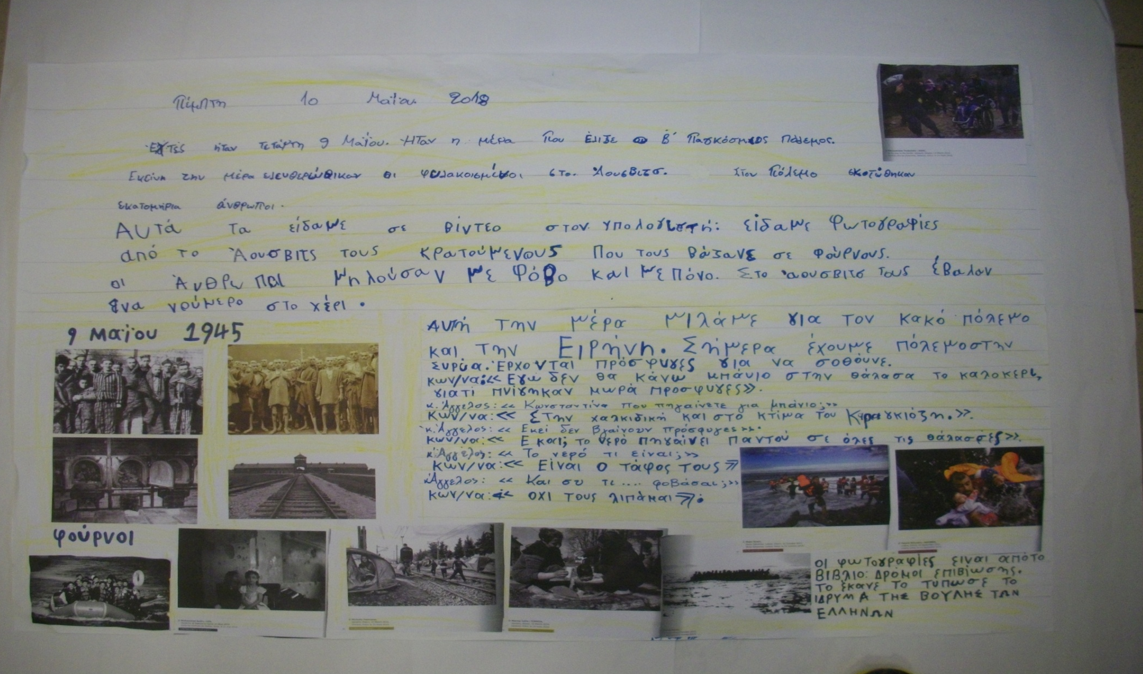 Πέμπτη 10 Μαΐου 2018
Εχτές ήταν τετάρτη 9 Μαΐου. Ήταν η μέρα που έλιξε ο Β΄ Παγκόσμιος Πόλεμος.
Εκείνη την μέρα ελευθερώθηκαν οι φυλακοισμένοι στο Άουσβιτσ. Στον πόλεμο σκοτώθηκαν
εκατομήρια άνθρωποι.
Αυτά τα είδαμε σε βίντεο στον υπολογιστή: είδαμε φωτογραφίες
από το Άουσβιτς τους κρατούμενους που τους βάζανε σε φούρνους.
οι Άνθρωποι μηλούσαν με φόβο και με πόνο. Στο αουσβιτσ τους έβαλαν
ένα νούμερο στο χέρι.
9 Μαΐου 1945
Αυτή την μέρα μιλάμε για τον κακό πόλεμο
και την Ειρήνη. Σήμερα έχουμε πόλεμο στην
Συρία. Έρχονται πρόσφυγες για να σοθούνε.
κων/να: «Εγω δεν θα κάνω μπάνιο στην θάλασα το καλοκέρι,
γιατι πνίγηκαν μωρά προσφυγες».
κ. Άγγελος: «Κωνσταντίνα που πηγαίνετε για μπάνιο;»
Κων/να: «Στην χαλκιδική και στο κτίμα του Καραγκιόζη.».
κ. Άγγελος: «Εκεί δεν βγαίνουν πρόσφυγες».
κων/να: «Ε και; το νερό πηγαίνει παντού σε όλες τις θάλασσες».
κ. Άγγελος: «Το νερό τι είναι;»
Κων/να: «Είναι ο τάφος τους»
κ. Άγγελος: «Και συ τι.... φοβάσαι;»
κων/να: « ΟΧΙ τους λιπάμαι».
φούρνοι
οι φωτογραφίες είναι από το
βιβλιο: ΔΡΟΜΟΙ ΕΠΙΒΙΩΣΗΣ.
ΤΟ ΕΚΑΝΕ ΤΟ ΤΥΠΩΣΕ ΤΟ
ΙΔΡΥΜΑ ΤΗΣ ΒΟΥΛΗΣ ΤΩΝ
ΕΛΛΗΝΩΝ